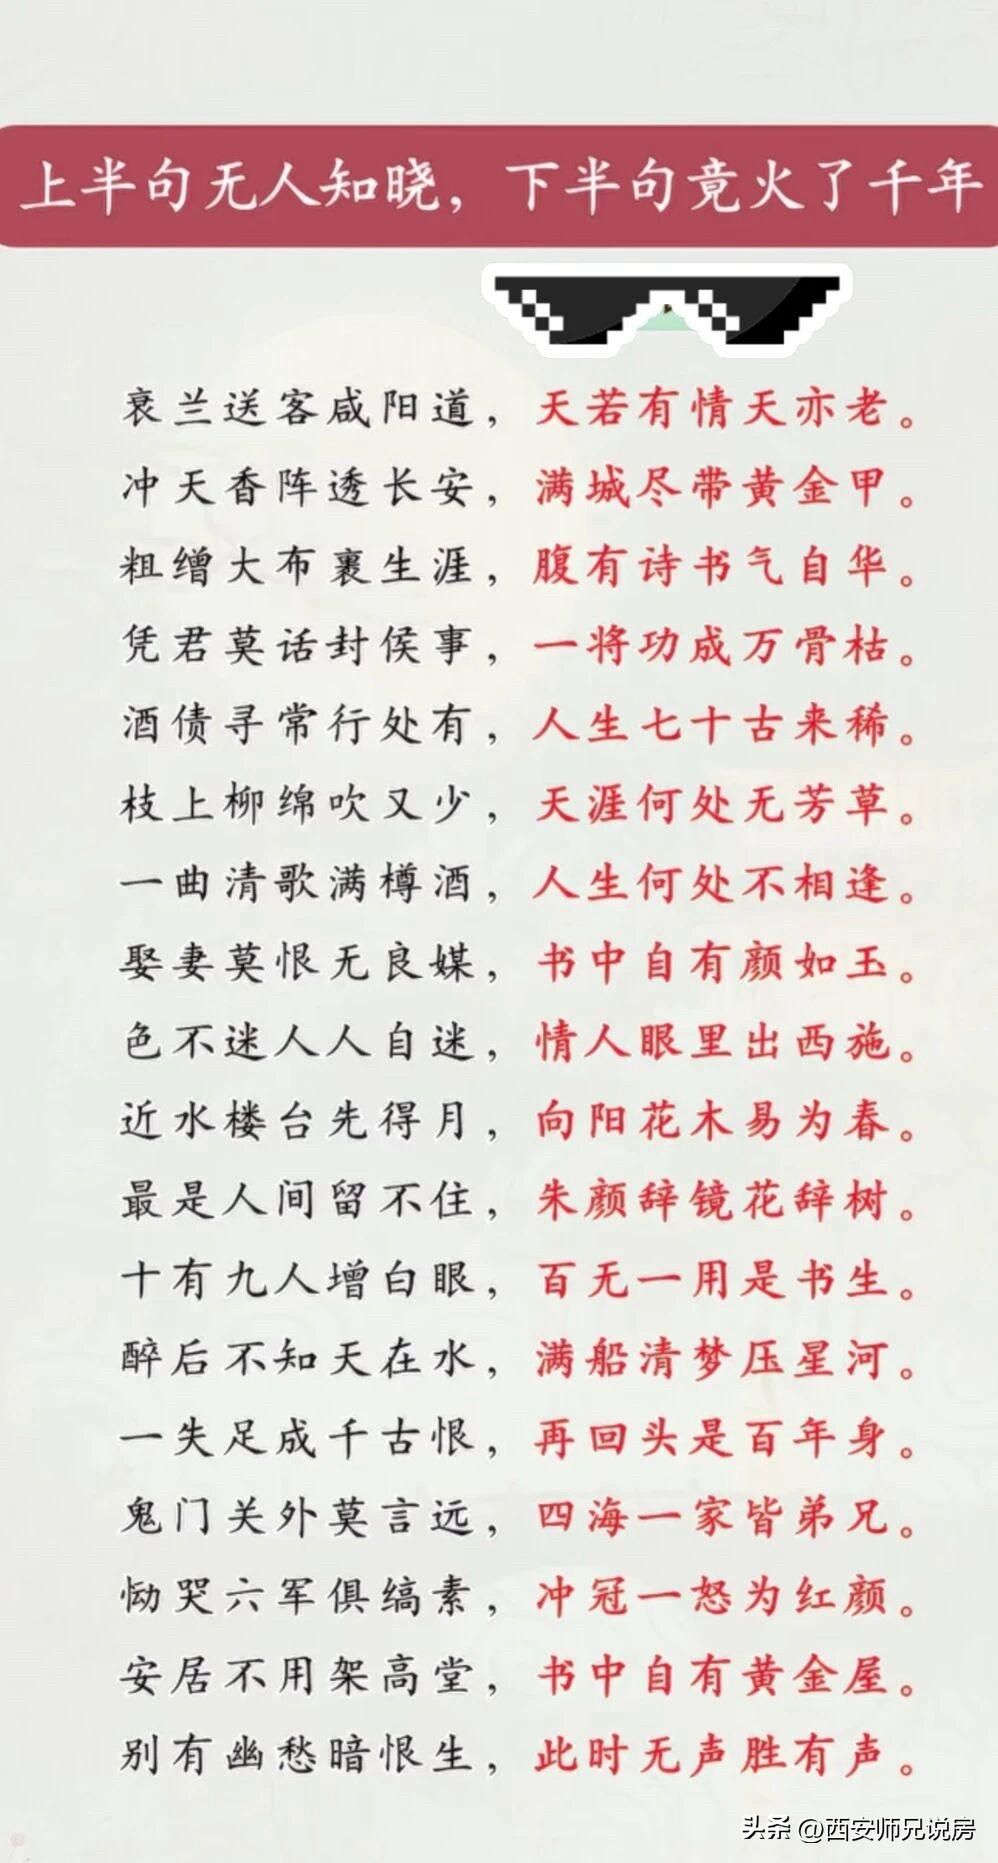 上半句无人知晓，下半句竟火了千年
衰兰送客咸阳道，天若有情天亦老。
冲天香阵透长安，满城尽带黄金甲。
粗缯大布裹生涯，腹有诗书气自华。
凭君莫话封侯事，一将功成万骨枯。
酒债寻常行处有，人生七十古来稀。
枝上柳绵吹又少，天涯何处无芳草。
一曲清歌满樽酒，人生何处不相逢。
娶妻莫恨无良媒，书中自有颜如玉。
色不迷人人自迷，情人眼里出西施。
近水楼台先得月，向阳花木易为春。
最是人间留不住，朱颜辞镜花辞树。
十有九人增白眼，百无一用是书生。
醉后不知天在水，满船清梦压星河。
一失足成千古恨，再回头是百年身。
鬼门关外莫言远，四海一家皆弟兄。
恸哭六军俱缟素，冲冠一怒为红颜。
安居不用架高堂，书中自有黄金屋。
别有幽愁暗恨生，此时无声胜有声。
头条 @西安师兄说房